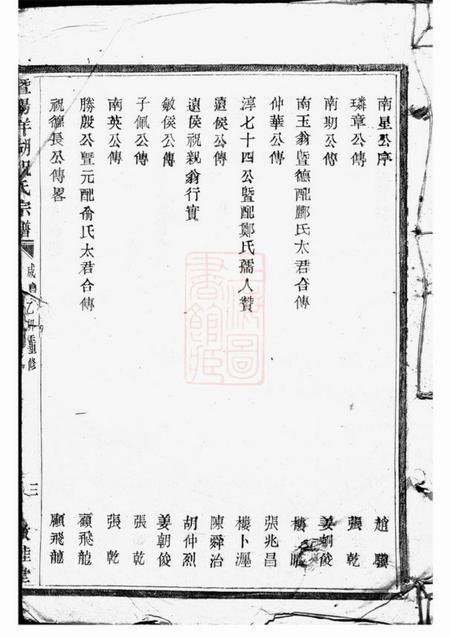 南星公序 趙驥
璘章公傳 張乾
南期公傳 姜朝俊
南玉翁暨德配酈氏太君合傳 樓
仲華公傳 張兆昌
淳七十四公暨配鄭氏孺人贊 樓卜瀍
遠侯公傳 陳舜治
遠侯祝親翁行實 胡仲烈
敏侯公傳 姜朝俊
子佩公傳 張乾
南英公傳 張乾
勝殷公暨元配俞氏太君合傳 顧飛龍
祝德長公傳畧 顧飛龍
暨陽祝氏宗譜
咸豐乙卯重修
三
桂堂
上海圖書館藏